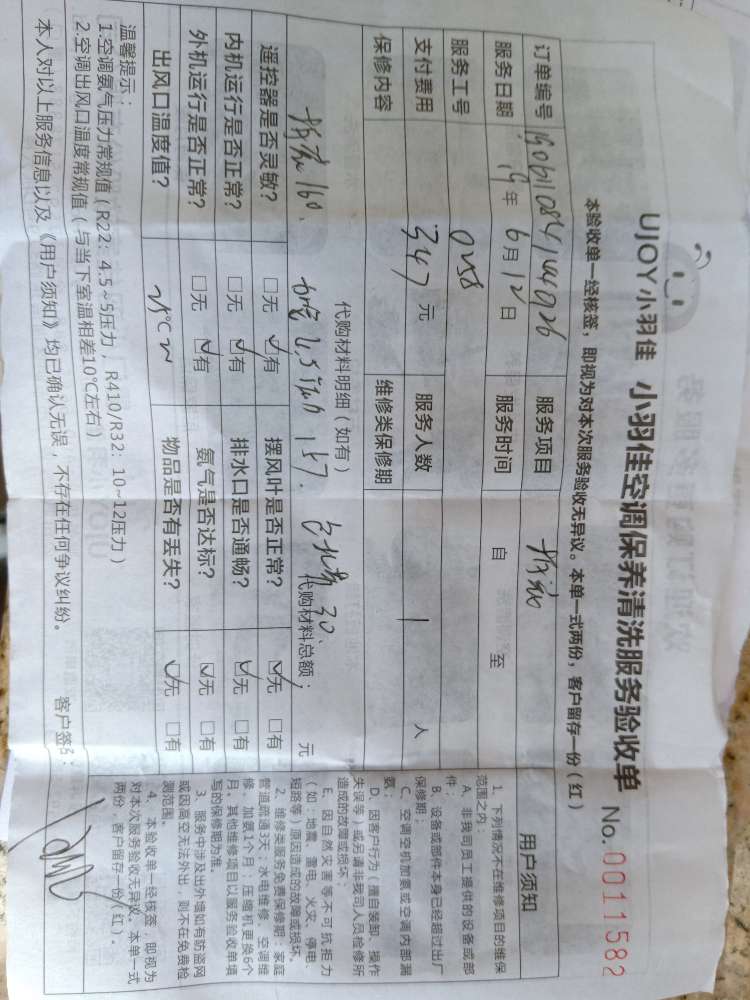 UJOY小羽佳 小羽佳空调保养清洗服务验收单 No.0011582
本验收单一经核签，即视为对本次服务验收无异议。本单一式两份，客户留存一份（红）
订单编号 服务项目 拆装
服务日期 19年6月12日 服务时间 自 至
服务工号 0258
支付费用 347元 服务人数 1 人
保修内容 维修类保修期
代购材料明细（如有）
拆装160. 157. 30.
代购材料总额： 元
遥控器是否灵敏？ □无 ☑有 摆风叶是否正常？ ☑无 □有
内机运行是否正常？ □无 ☑有 排水口是否通畅？ ☑无 □有
外机运行是否正常？ □无 ☑有 氨气是否达标？ ☑无 □有
出风口温度值？ ℃ 物品是否有丢失？ ☑无 □有
温馨提示：
1.空调氨气压力常规值（R22：4.5~5压力，R410/R32：10~12压力）
2.空调出风口温度常规值（与当下室温相差10℃左右）
本人对以上服务信息以及《用户须知》均已确认无误，不存在任何争议纠纷。 客户签名：
用户须知
1、下列情况不在维修项目的维保
范围之内：
A、非我司员工提供的设备或部
件；
B、设备或部件本身已经超过出厂
保修期；
C、空调空机加氨或空调内部漏
氨；
D、因客户行为（擅自装卸、操作
失误等）或另请非我司人员检修所
造成的故障或损坏；
E、因自然灾害等不可抗拒力
（如：地震、雷电、火灾、停电、
短路等）原因造成的故障或损坏。
2、维修类服务免费保修期：家庭
管道疏通3天；水电维修、空调维
修、加氨1个月；压缩机更换6个
月。其他维修项目以服务验收单填
写的保修期为准。
3、服务中涉及出外墙如有防盗网
或因高空无法外出，则不在免费检
测范围。
4、本验收单一经核签，即视为
对本次服务验收无异议。本单一式
两份，客户留存一份（红）。